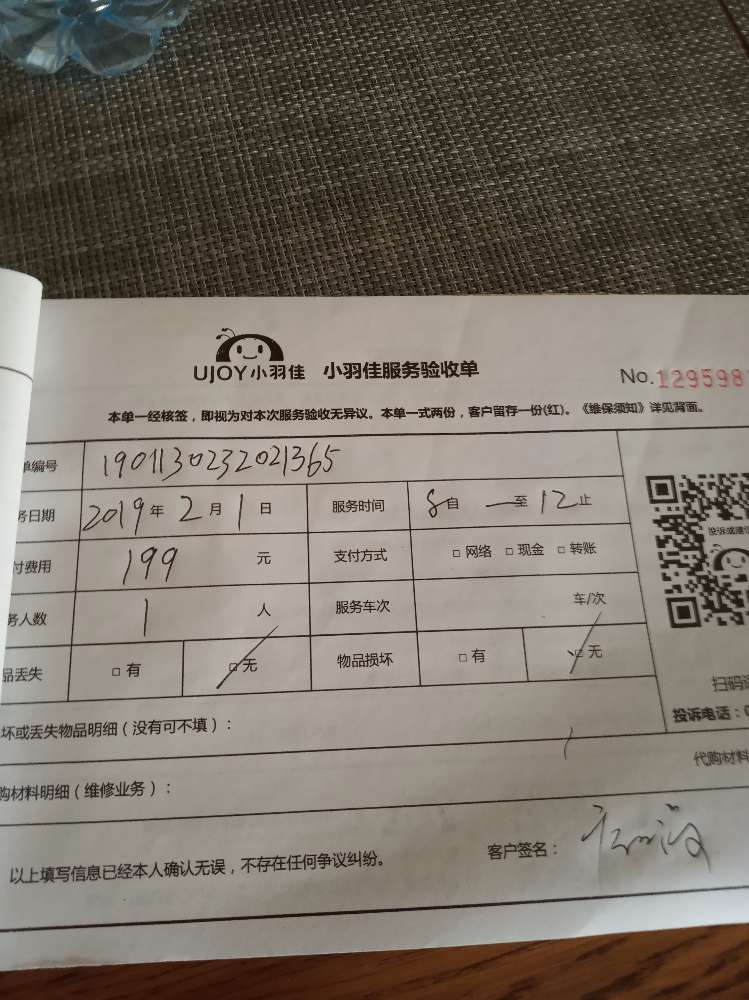 UJOY小羽佳 小羽佳服务验收单
No.129598
本单一经核签，即视为对本次服务验收无异议。本单一式两份，客户留存一份(红)。《维保须知》详见背面。
单编号 1901130232021365
务日期 2019年2月1日 服务时间 8自 一至12止
付费用 199 元 支付方式 □ 网络 □ 现金 □ 转账
务人数 1 人 服务车次 车/次
品丢失 □ 有 □ 无 物品损坏 □ 有 □ 无
投诉或建议
扫码
投诉电话：0
坏或丢失物品明细（没有可不填）：
代购材料
购材料明细（维修业务）：
以上填写信息已经本人确认无误，不存在任何争议纠纷。
客户签名：